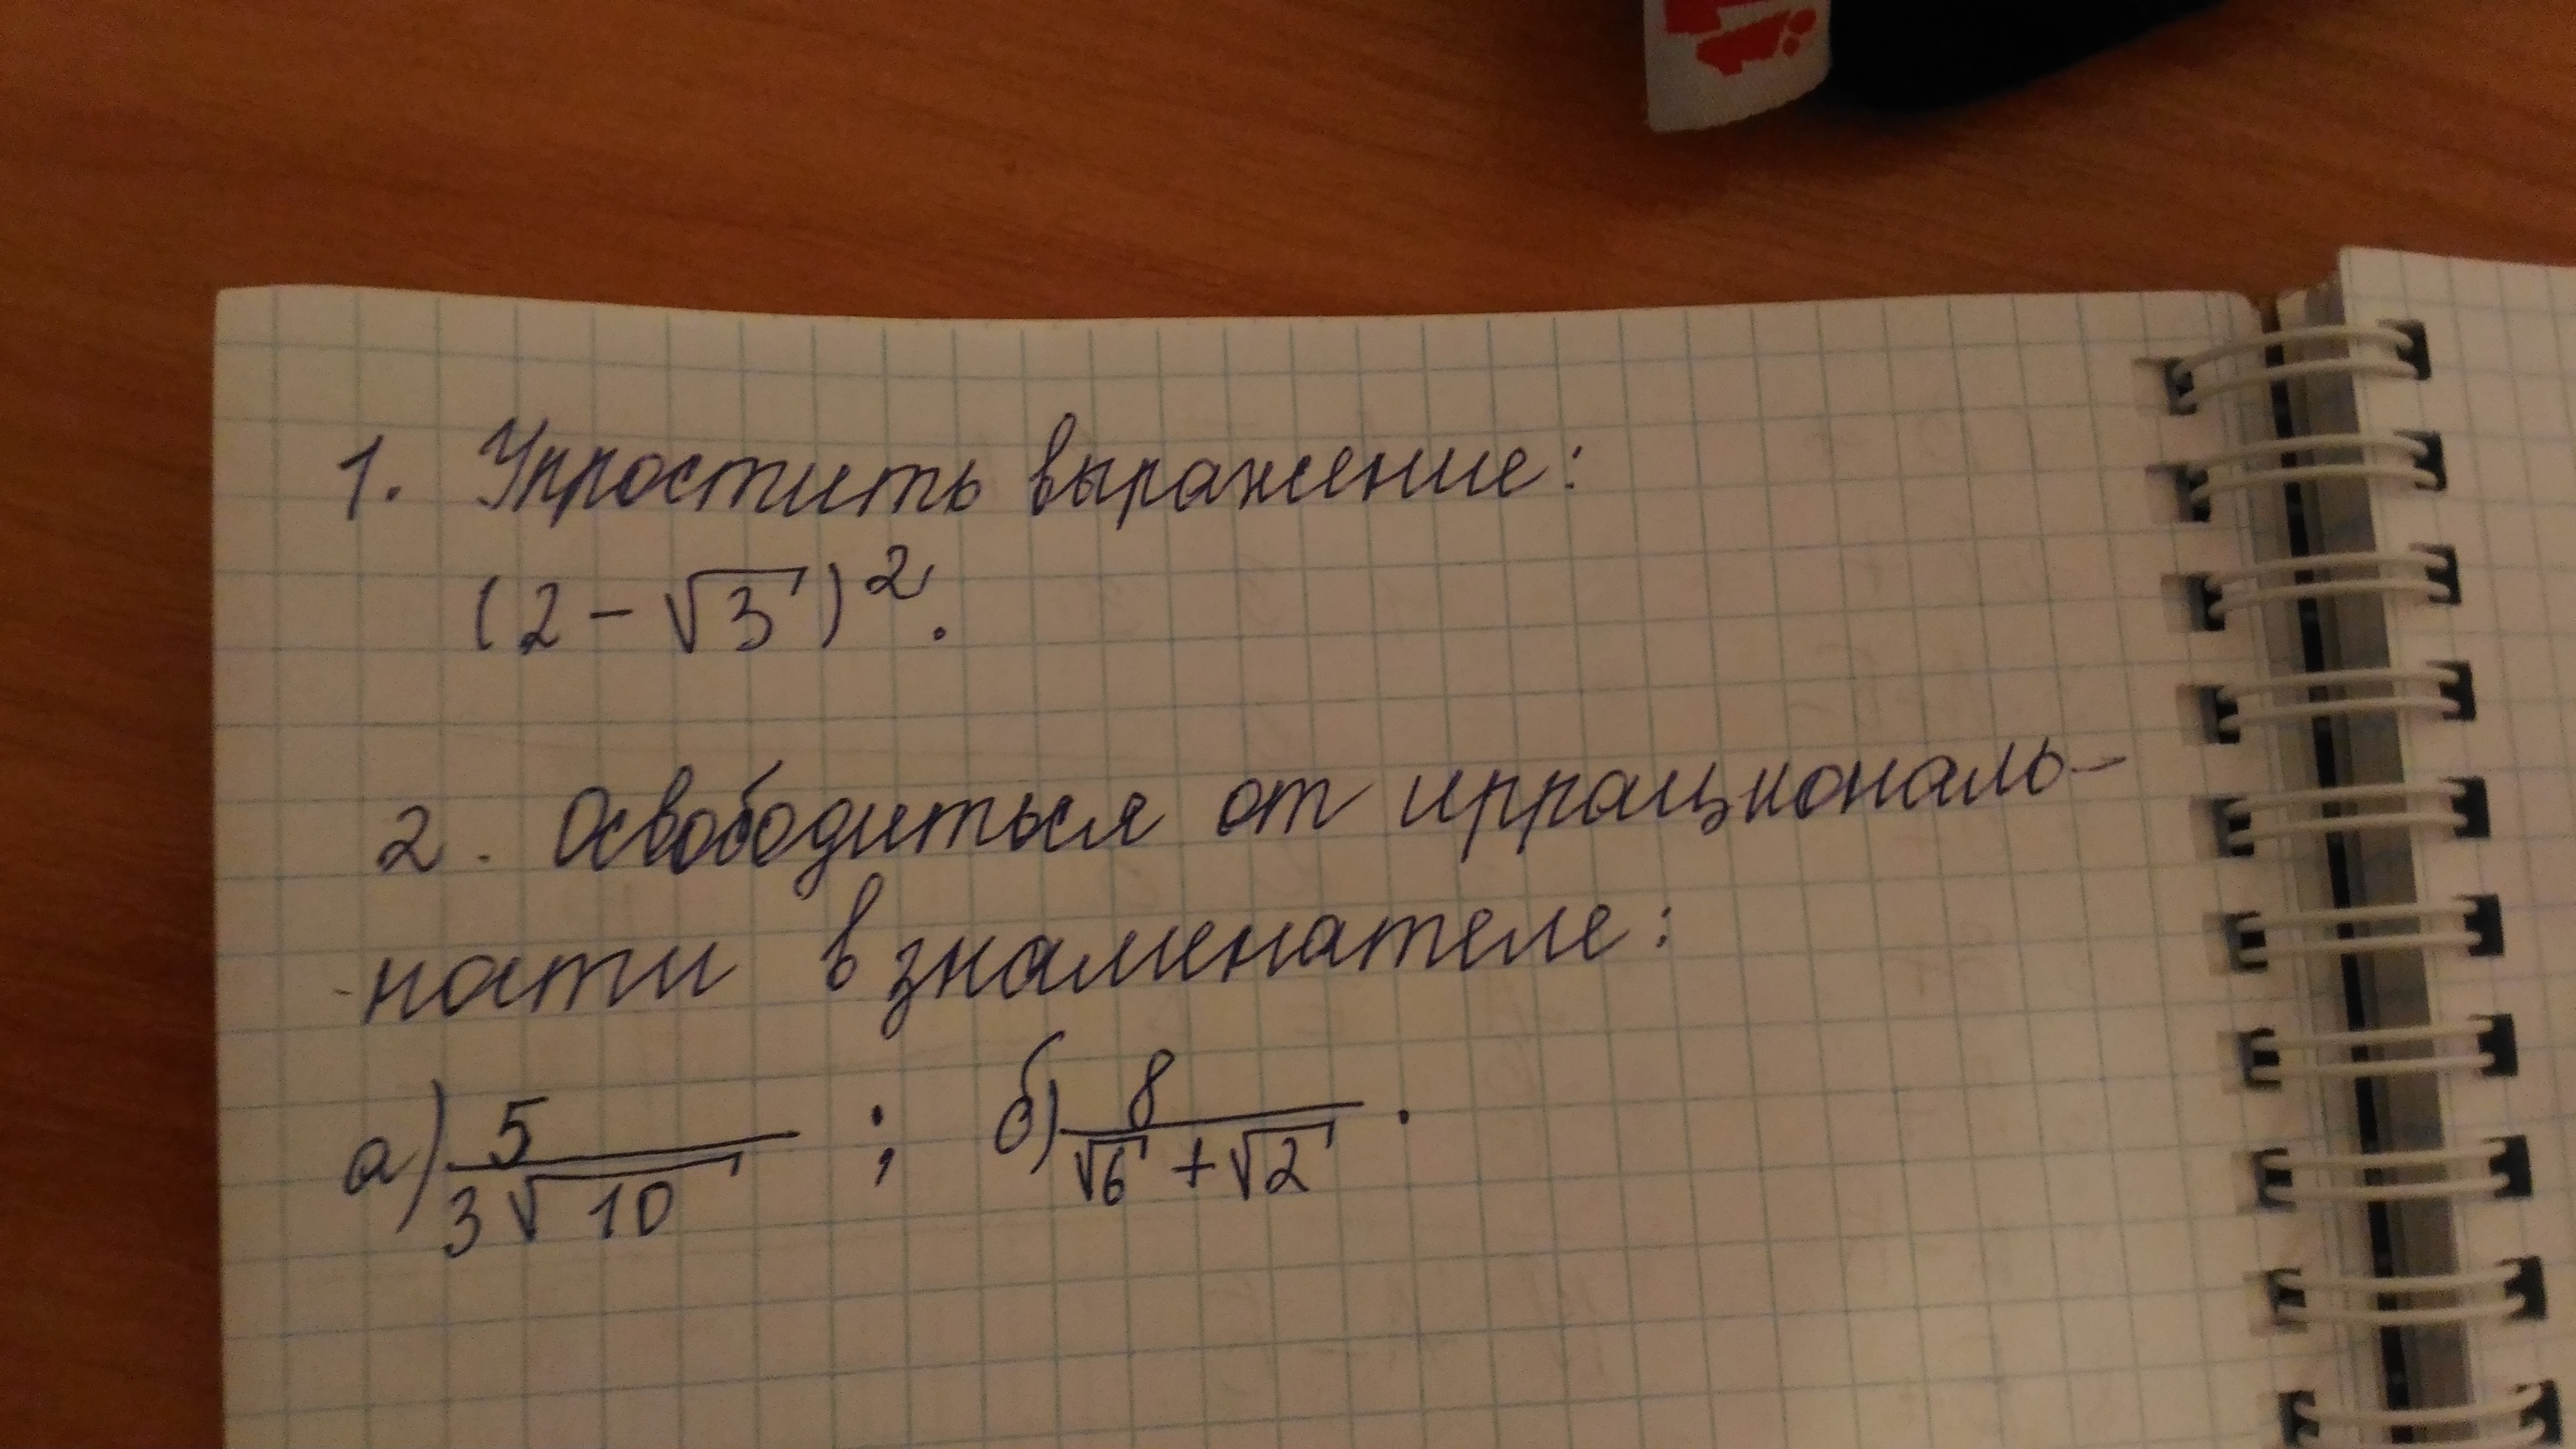 1. Упростить выражение:
(2 - √3)².
2. Освободиться от иррациональ-
-ности в знаменателе:
а) 5/(3√10) ; б) 8/(√6 + √2) .